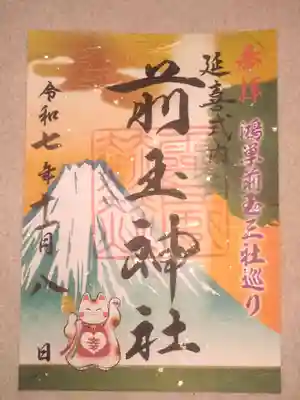 奉拝
鴻巣前玉三社巡り
延喜式内社
前玉神社
令和七年十一月八日
幸